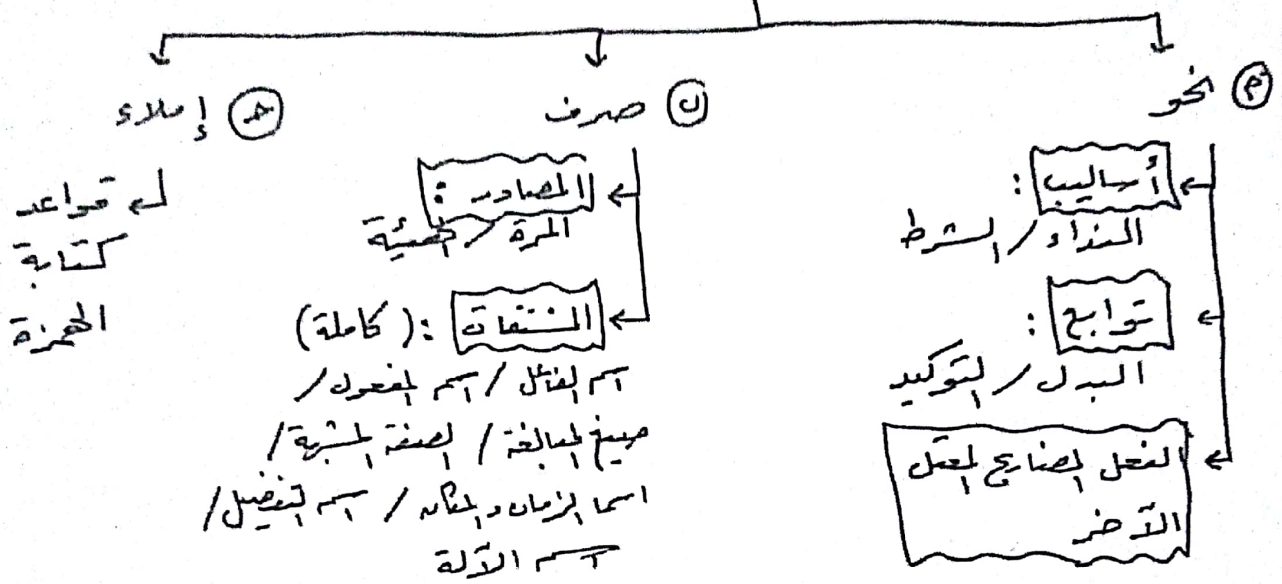 أ نحو
أساليب :
النداء / الشرط
توابع :
البدل / التوكيد
الفعل المضارع المعتل
الآخر
ب صرف
المصادر :
المرة / الهيئة
المشتقات : (كاملة)
اسم الفاعل / اسم المفعول /
صيغ المبالغة / الصفة المشبهة /
اسما الزمان والمكان / اسم التفضيل /
اسم الآلة
جـ إملاء
قواعد
كتابة
الهمزة